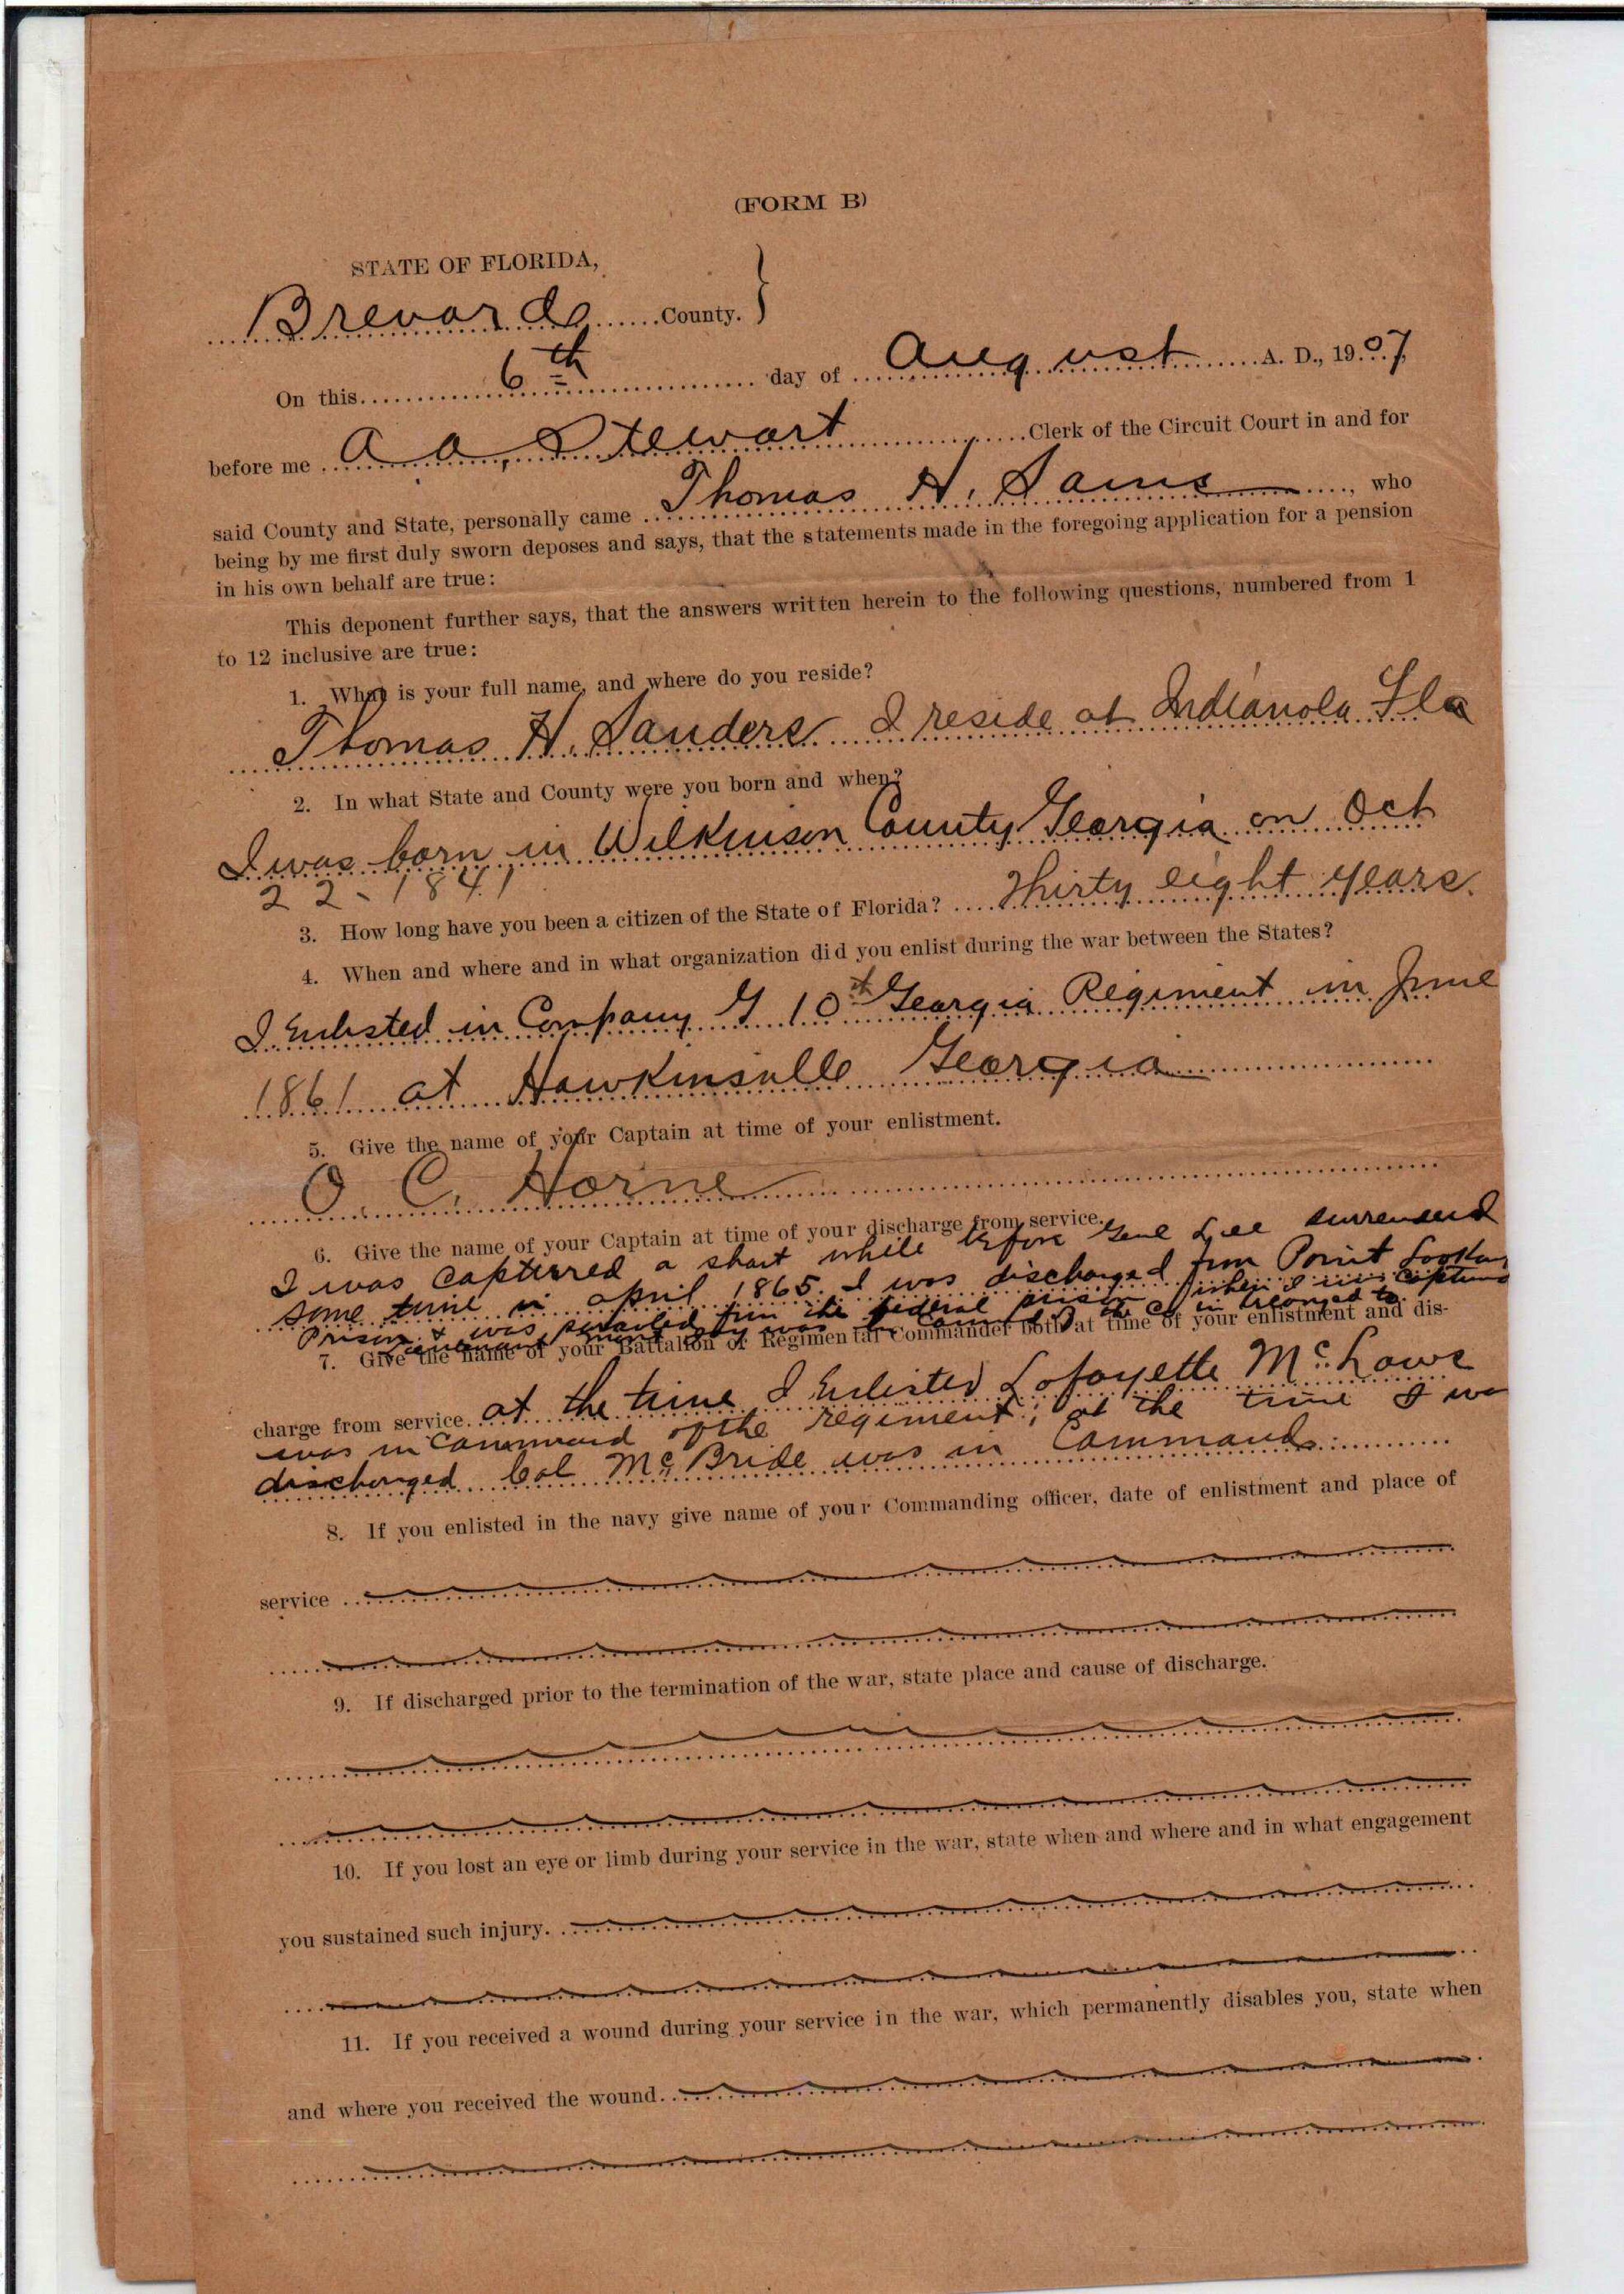 (FORM B)
STATE OF FLORIDA,
Brevard County. }
On this 6th day of August A. D., 1907,
before me A A. Stewart Clerk of the Circuit Court in and for
said County and State, personally came Thomas H. Sams, who
being by me first duly sworn deposes and says, that the statements made in the foregoing application for a pension
in his own behalf are true:
This deponent further says, that the answers written herein to the following questions, numbered from 1
to 12 inclusive are true:
1. What is your full name, and where do you reside?
Thomas H. Sanders I reside at Indianola Fla
2. In what State and County were you born and when?
I was born in Wilkinson County Georgia on Oct
22-1841
3. How long have you been a citizen of the State of Florida? Thirty eight years.
4. When and where and in what organization did you enlist during the war between the States?
I Enlisted in Company G 10th Georgia Regiment in June
1861 at Hawkinsville Georgia
5. Give the name of your Captain at time of your enlistment.
O. C. Horne
6. Give the name of your Captain at time of your discharge from service.
I was captured a short while before Genl Lee surrendered
some time in april 1865. I was discharged from Point Lookout
Prison & was paroled from the federal prison when I was captured
Lieutenant was in command of the Co I belonged to.
7. Give the name of your Battalion or Regimental Commander both at time of your enlistment and dis-
charge from service. at the time I Enlisted Lafayette McLaws
was in Command of the regiment; at the time I was
discharged Col McBride was in Command.
8. If you enlisted in the navy give name of your Commanding officer, date of enlistment and place of
service
9. If discharged prior to the termination of the war, state place and cause of discharge.
10. If you lost an eye or limb during your service in the war, state when and where and in what engagement
you sustained such injury.
11. If you received a wound during your service in the war, which permanently disables you, state when
and where you received the wound.